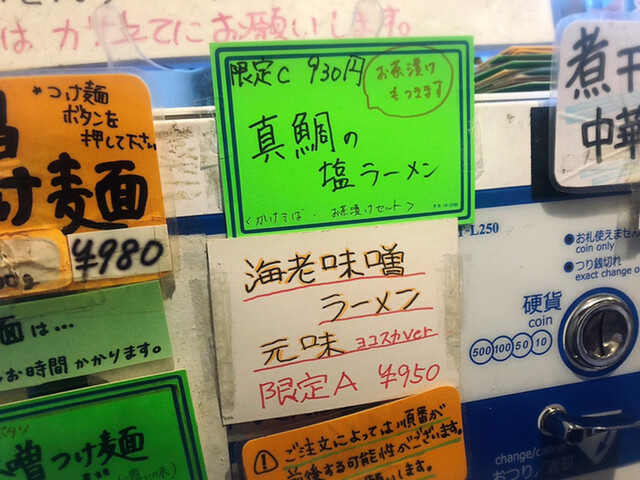 は か
てにお願いします。
*つけ麺
ボタンを
押して下さい
け麦面
¥980
限定C 930円
お茶漬け
もつきます
真鯛の
塩ラーメン
<かけそば・お茶漬けセット>
煮干
中華
T-L250
お札使えません
coin only
つり銭切れ
exact change o
硬貨
coin
500 100 50 10
海老味噌
ラーメン
元味 ヨコスカver
限定A ¥950
面は…
お時間かかります。
噌つけ麺
ご注文によっては順番が
前後する可能性がございます。
願いします。
change/cancel
おつり/返却